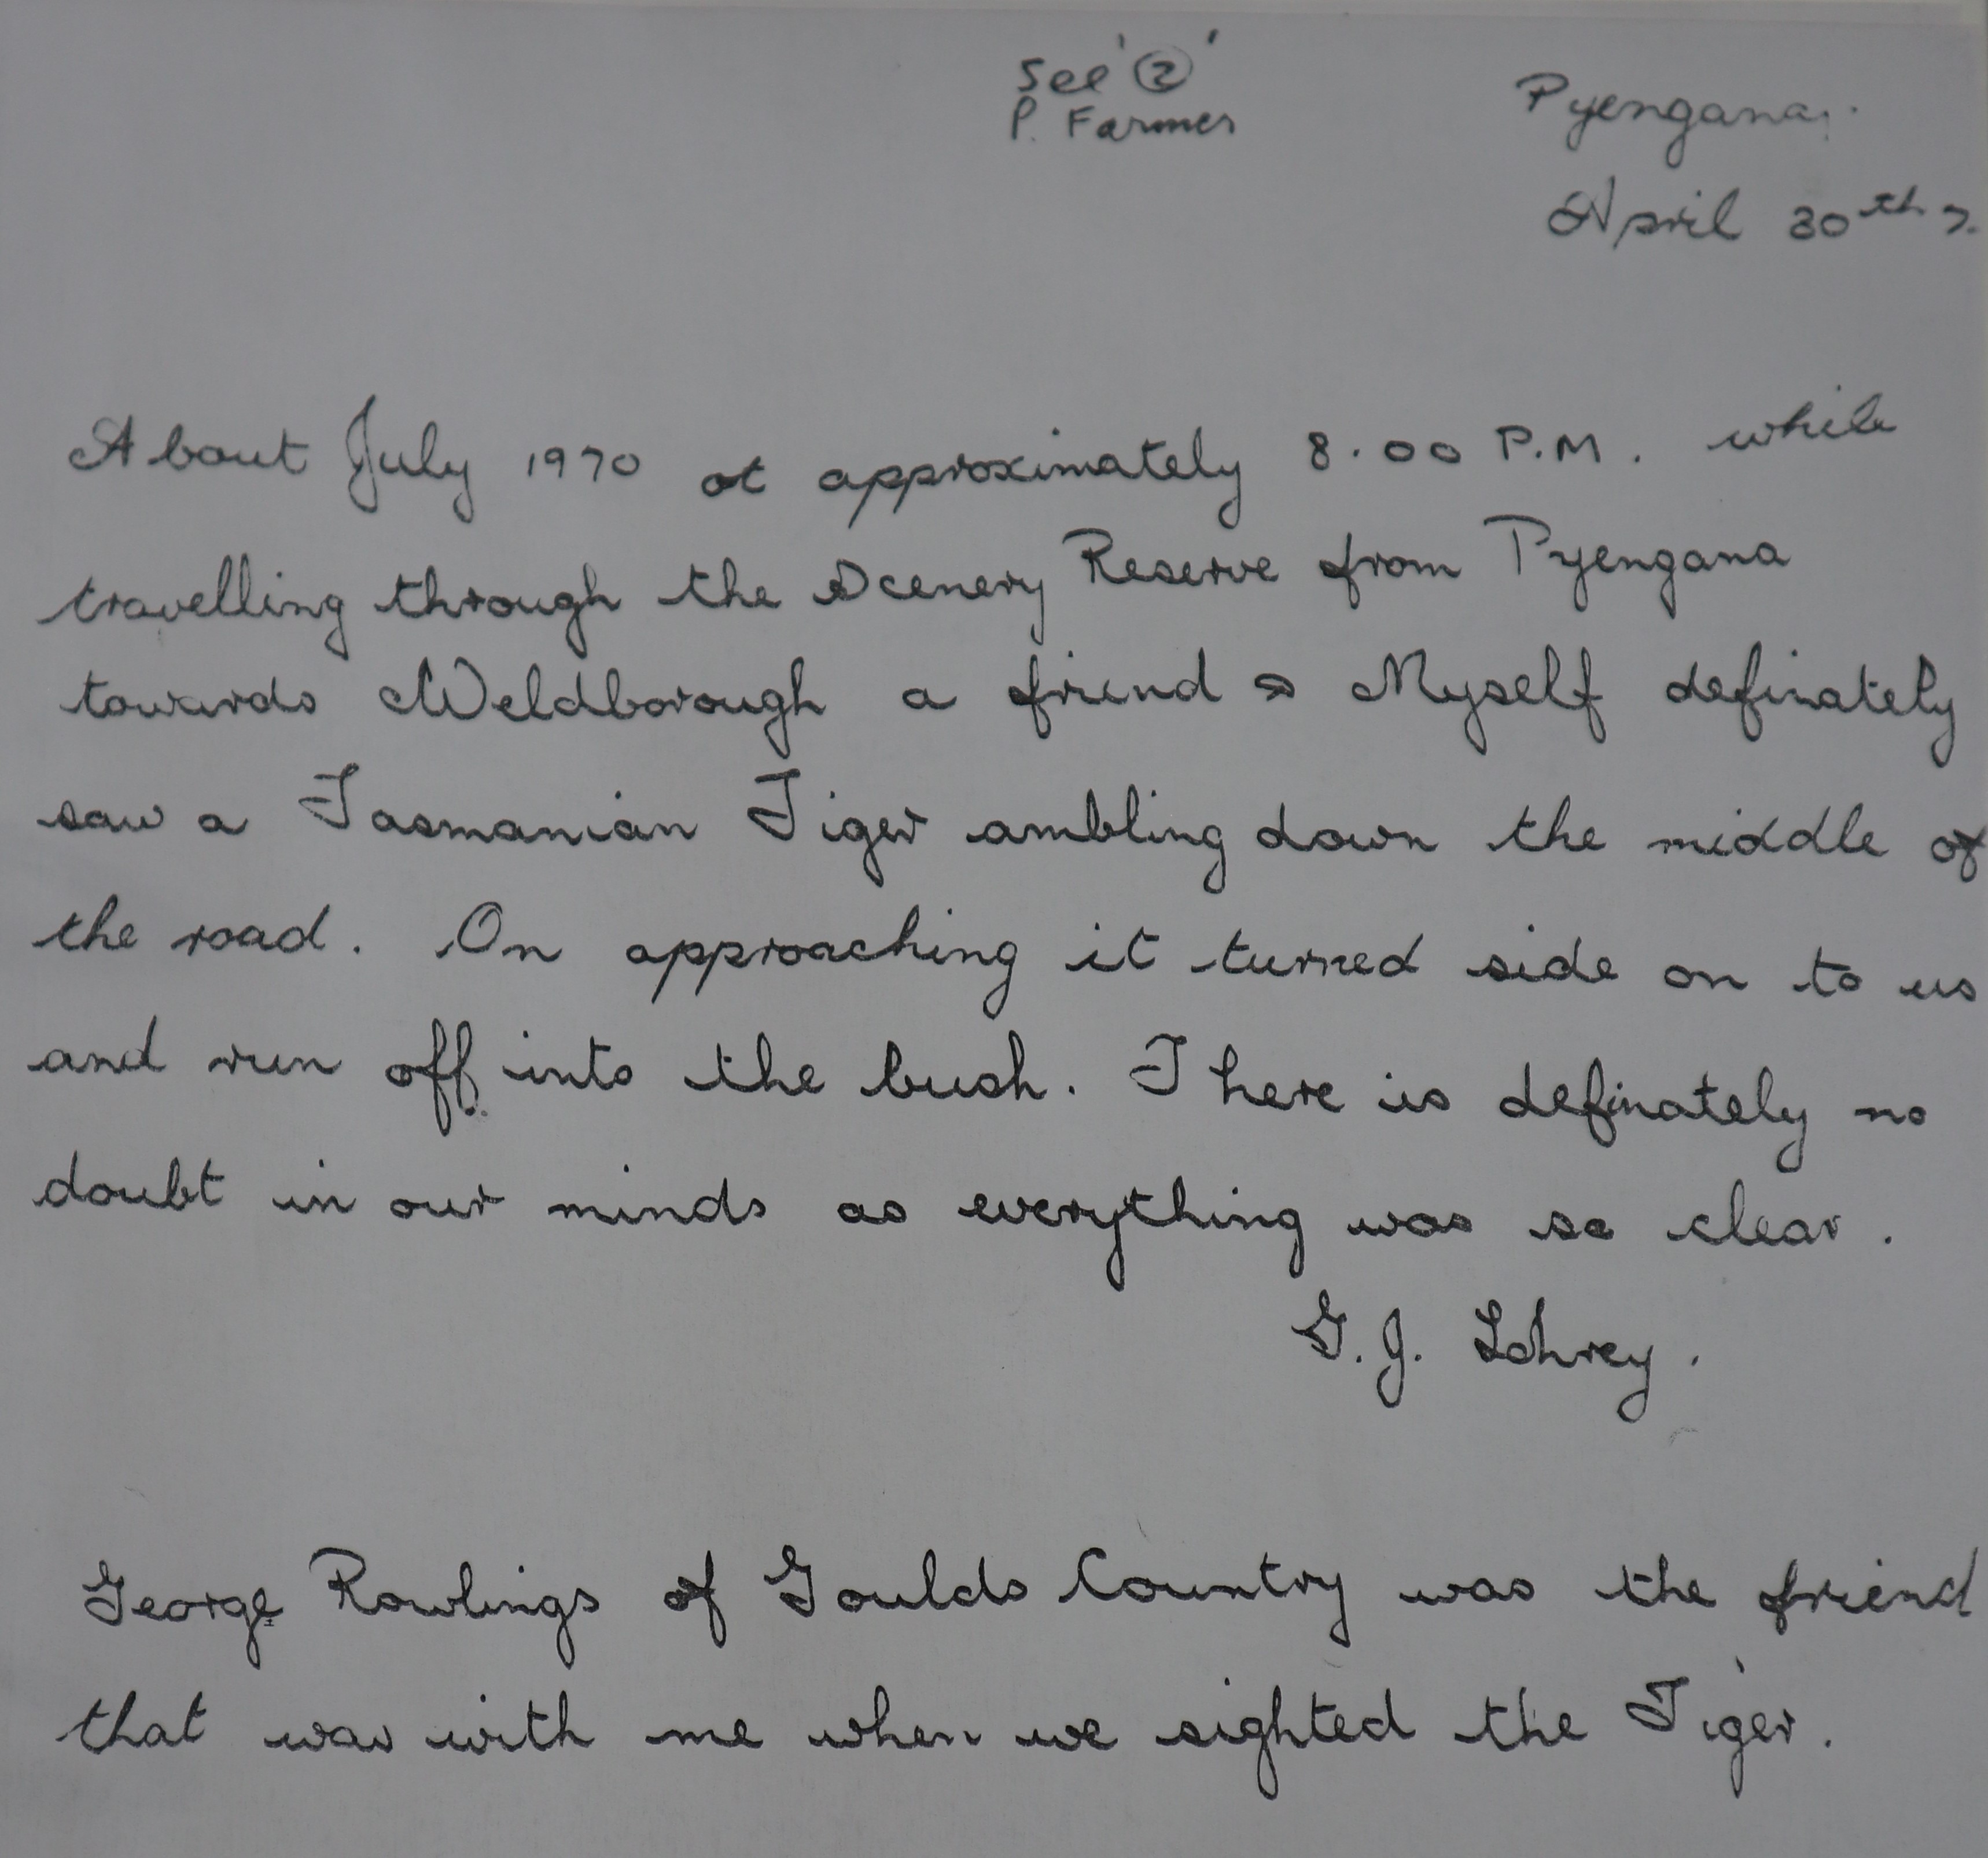 See '②'
P. Farmer
Pyengana,
April 30th 7
About July 1970 at approximately 8.00 P.M. while
travelling through the Scenery Reserve from Pyengana
towards Weldborough a friend & Myself definately
saw a Tasmanian Tiger ambling down the middle of
the road. On approaching it turned side on to us
and run off into the bush. There is definately no
doubt in our minds as everything was so clear.
G.J. Lohrey.
George Rowlings of Goulds Country was the friend
that was with me when we sighted the Tiger.